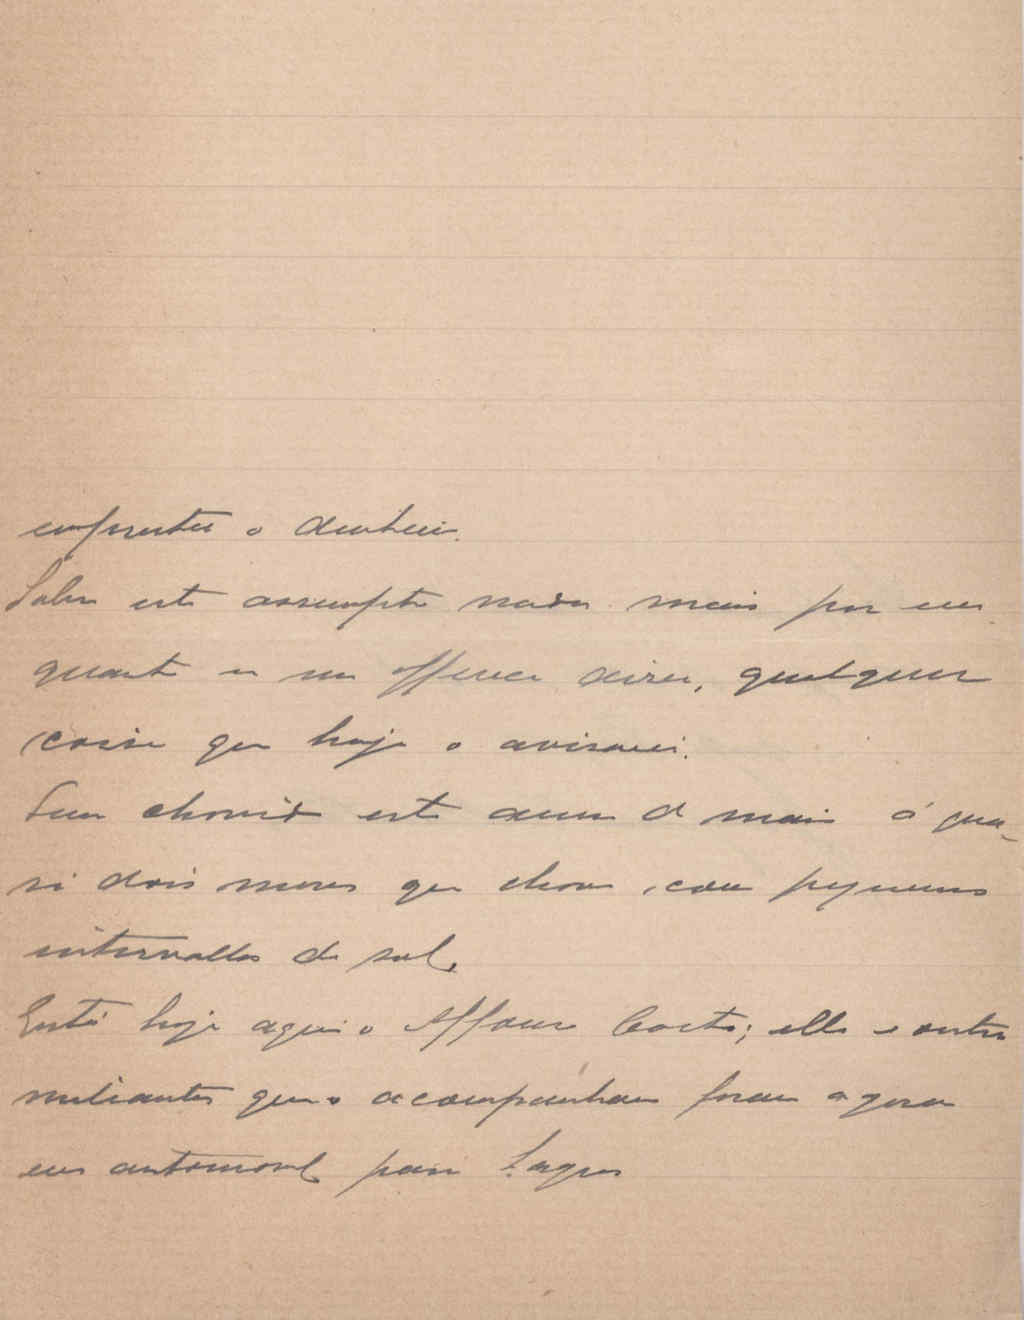 emprestei o dinheiro.
Sobre este assumpto nada mais por em
quanto se me offerece dizer, qualquer
coisa que haja o avisarei.
Tem chovido este anno de mais á qua-
si dois meses que chove, com pequenos
intervallos de sol.
Está hoje aqui o Affonso Costa; elle e outros
meliantes que o acompanham foram agora
em automovel para Lagos